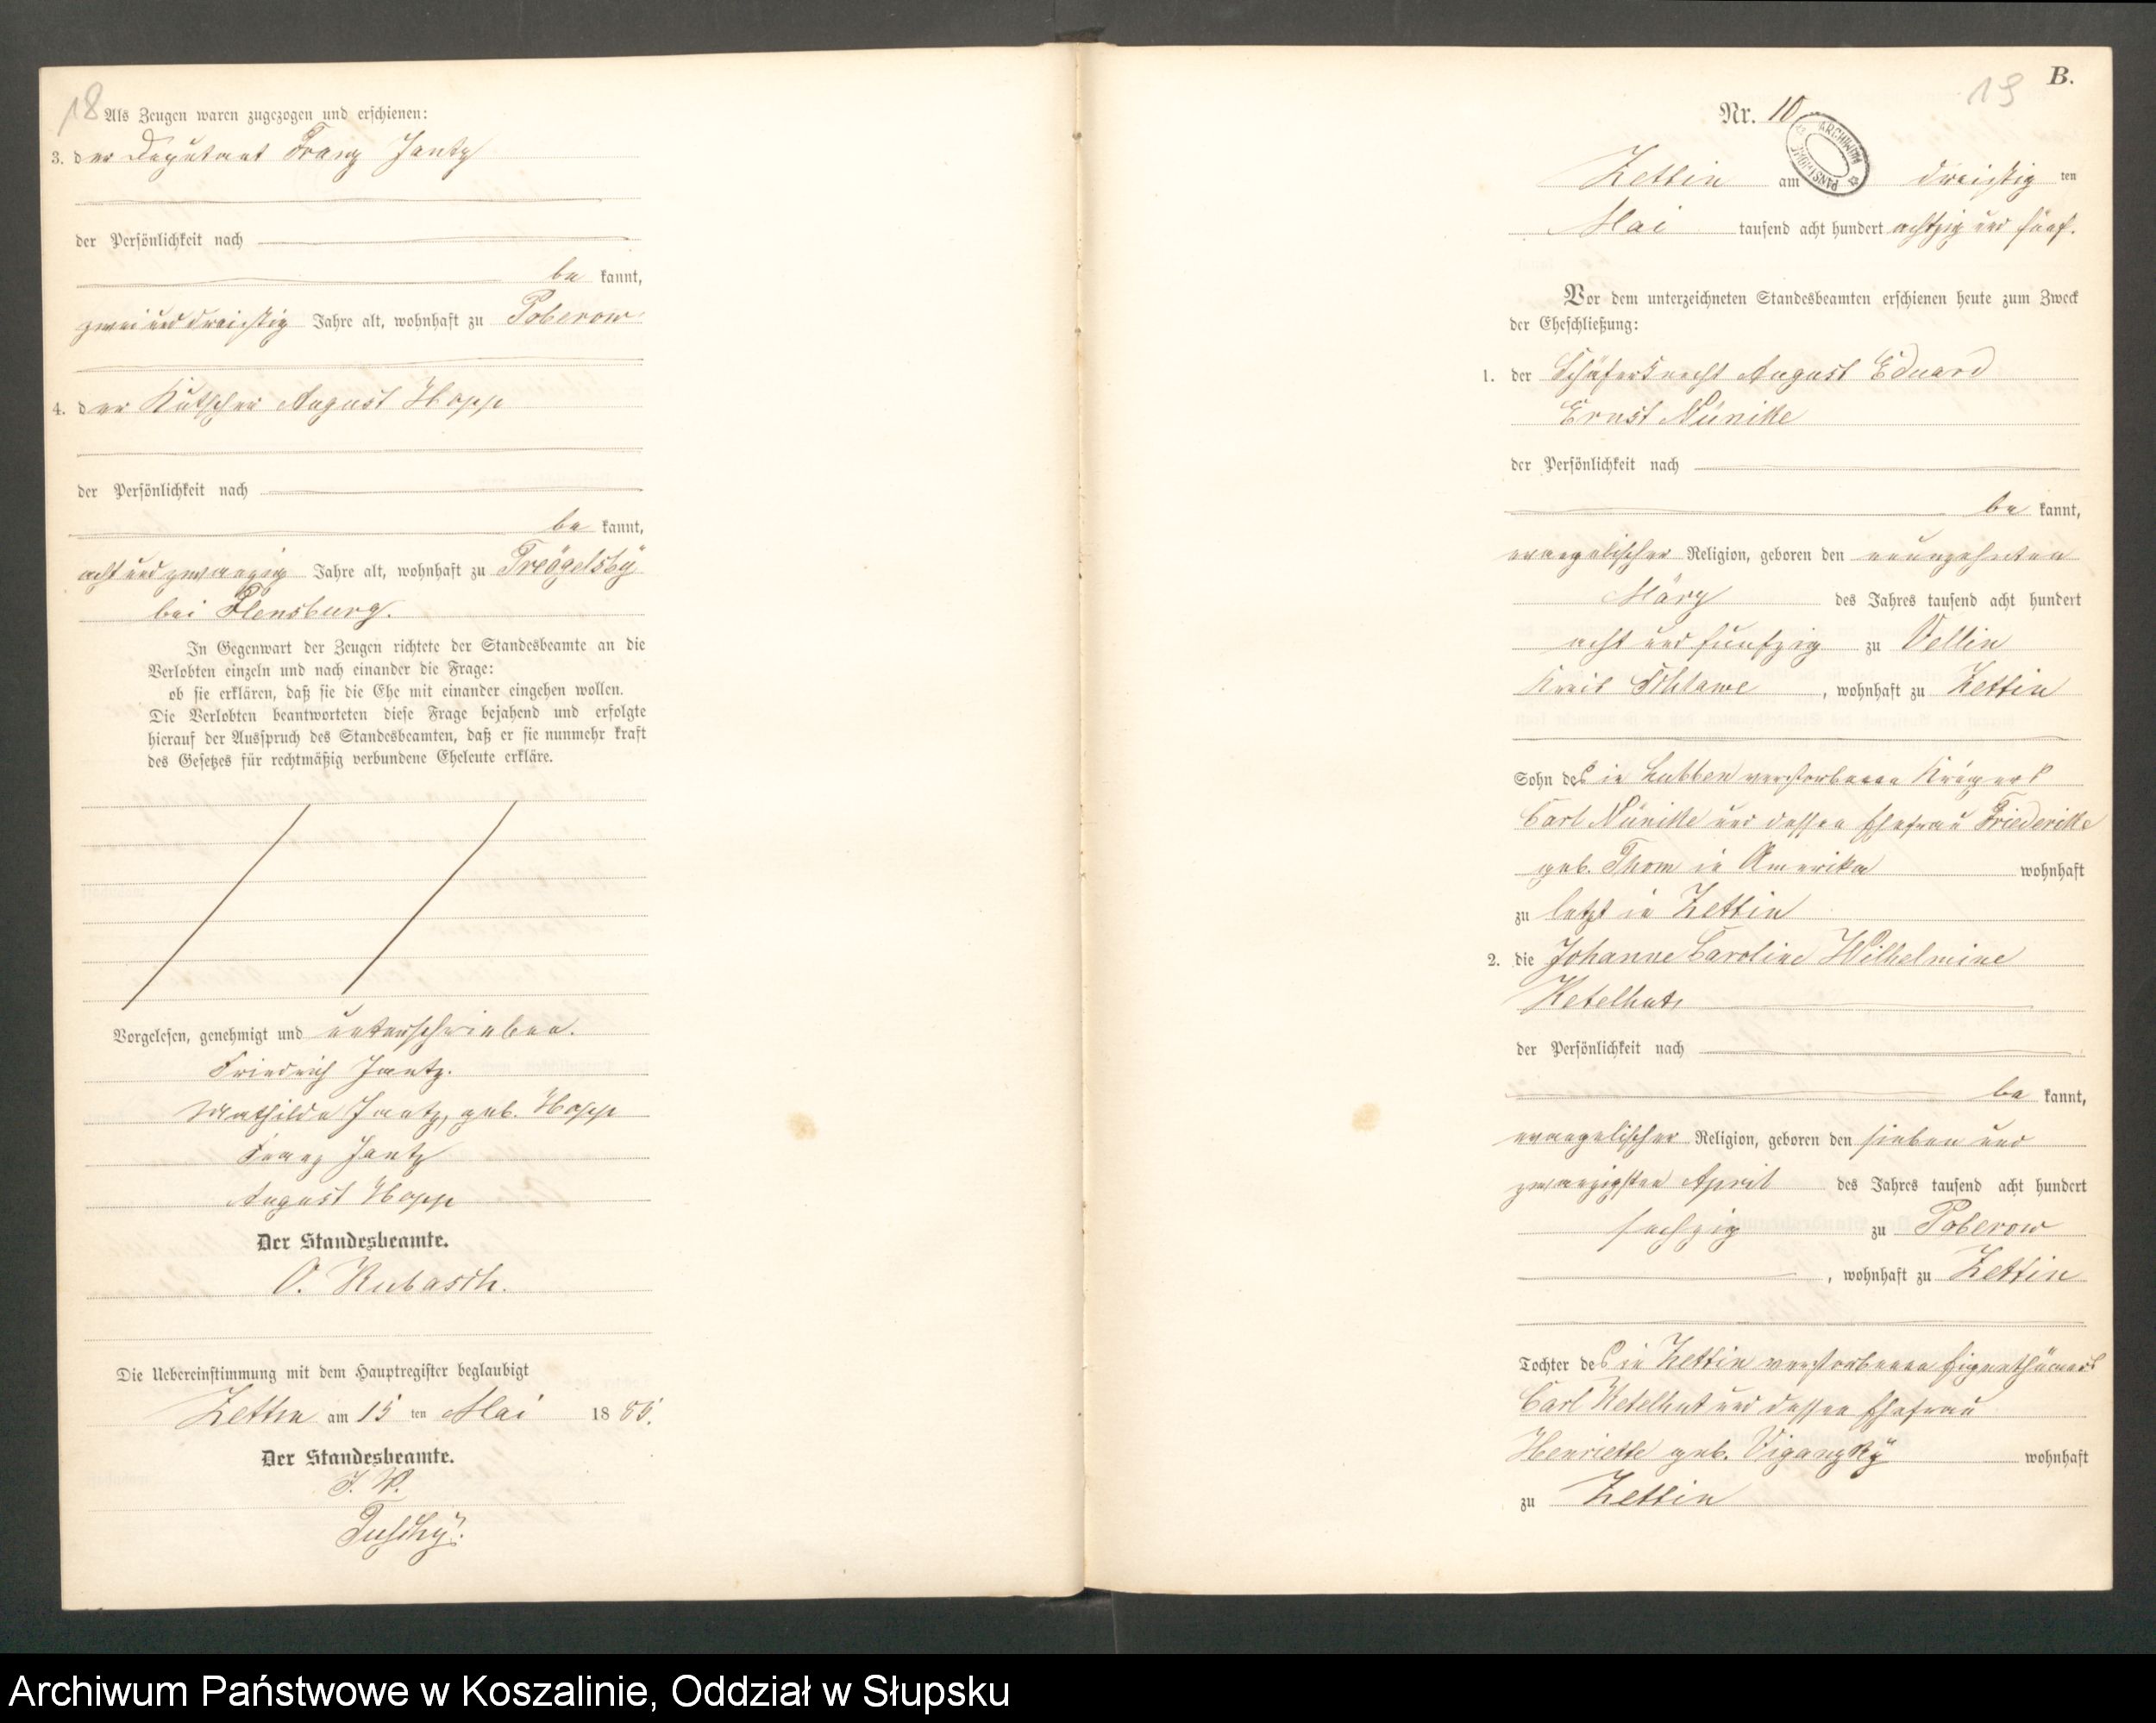 18
Als Zeugen waren zugezogen und erschienen:
3. der Deputant Franz Jantz
der Persönlichkeit nach
be kannt,
zwei und dreißig Jahre alt, wohnhaft zu Poberow
4. der Kutscher August Hopp
der Persönlichkeit nach
be kannt,
acht und zwanzig Jahre alt, wohnhaft zu Treögelsby
bei Flensburg.
In Gegenwart der Zeugen richtete der Standesbeamte an die
Verlobten einzeln und nach einander die Frage:
ob sie erklären, daß sie die Ehe mit einander eingehen wollen.
Die Verlobten beantworteten diese Frage bejahend und erfolgte
hierauf der Ausspruch des Standesbeamten, daß er sie nunmehr kraft
des Gesetzes für rechtmäßig verbundene Eheleute erkläre.
Vorgelesen, genehmigt und unterschrieben.
Friedrich Jantz.
Mathilde Jantz, geb. Hopp
Franz Jantz
August Hopp
Der Standesbeamte.
O. Kubasch.
Die Uebereinstimmung mit dem Hauptregister beglaubigt
Zettin am 15 ten Mai 18 85.
Der Standesbeamte.
J. V.
19
B.
Nr. 10
ARCHIWUM PAŃSTWOWE
Zettin am dreißig ten
Mai tausend acht hundert achtzig und fünf.
Vor dem unterzeichneten Standesbeamten erschienen heute zum Zweck
der Eheschließung:
1. der Schäferknecht August Eduard
Ernst Münikke
der Persönlichkeit nach
be kannt,
evangelischer Religion, geboren den neunzehnten
März des Jahres tausend acht hundert
acht und fünfzig zu Vellin
Kreis Schlawe, wohnhaft zu Zettin
Sohn des in Lubben verstorbenen Krügers
Carl Münikke und dessen Ehefrau Friederikke
geb. Thom in Amerika wohnhaft
zu letzt in Zettin
2. die Johanne Caroline Wilhelmine
Ketelhut,
der Persönlichkeit nach
be kannt,
evangelischer Religion, geboren den sieben und
zwanzigsten April des Jahres tausend acht hundert
sechzig zu Poberow
, wohnhaft zu Zettin
Tochter des in Zettin verstorbenen Eigenthümers
Carl Ketelhut und dessen Ehefrau
Henriette geb. Viganzky wohnhaft
zu Zettin
Archiwum Państwowe w Koszalinie, Oddział w Słupsku